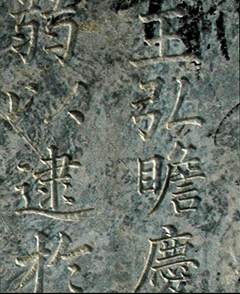 王弘瞻慶
弱以逮於